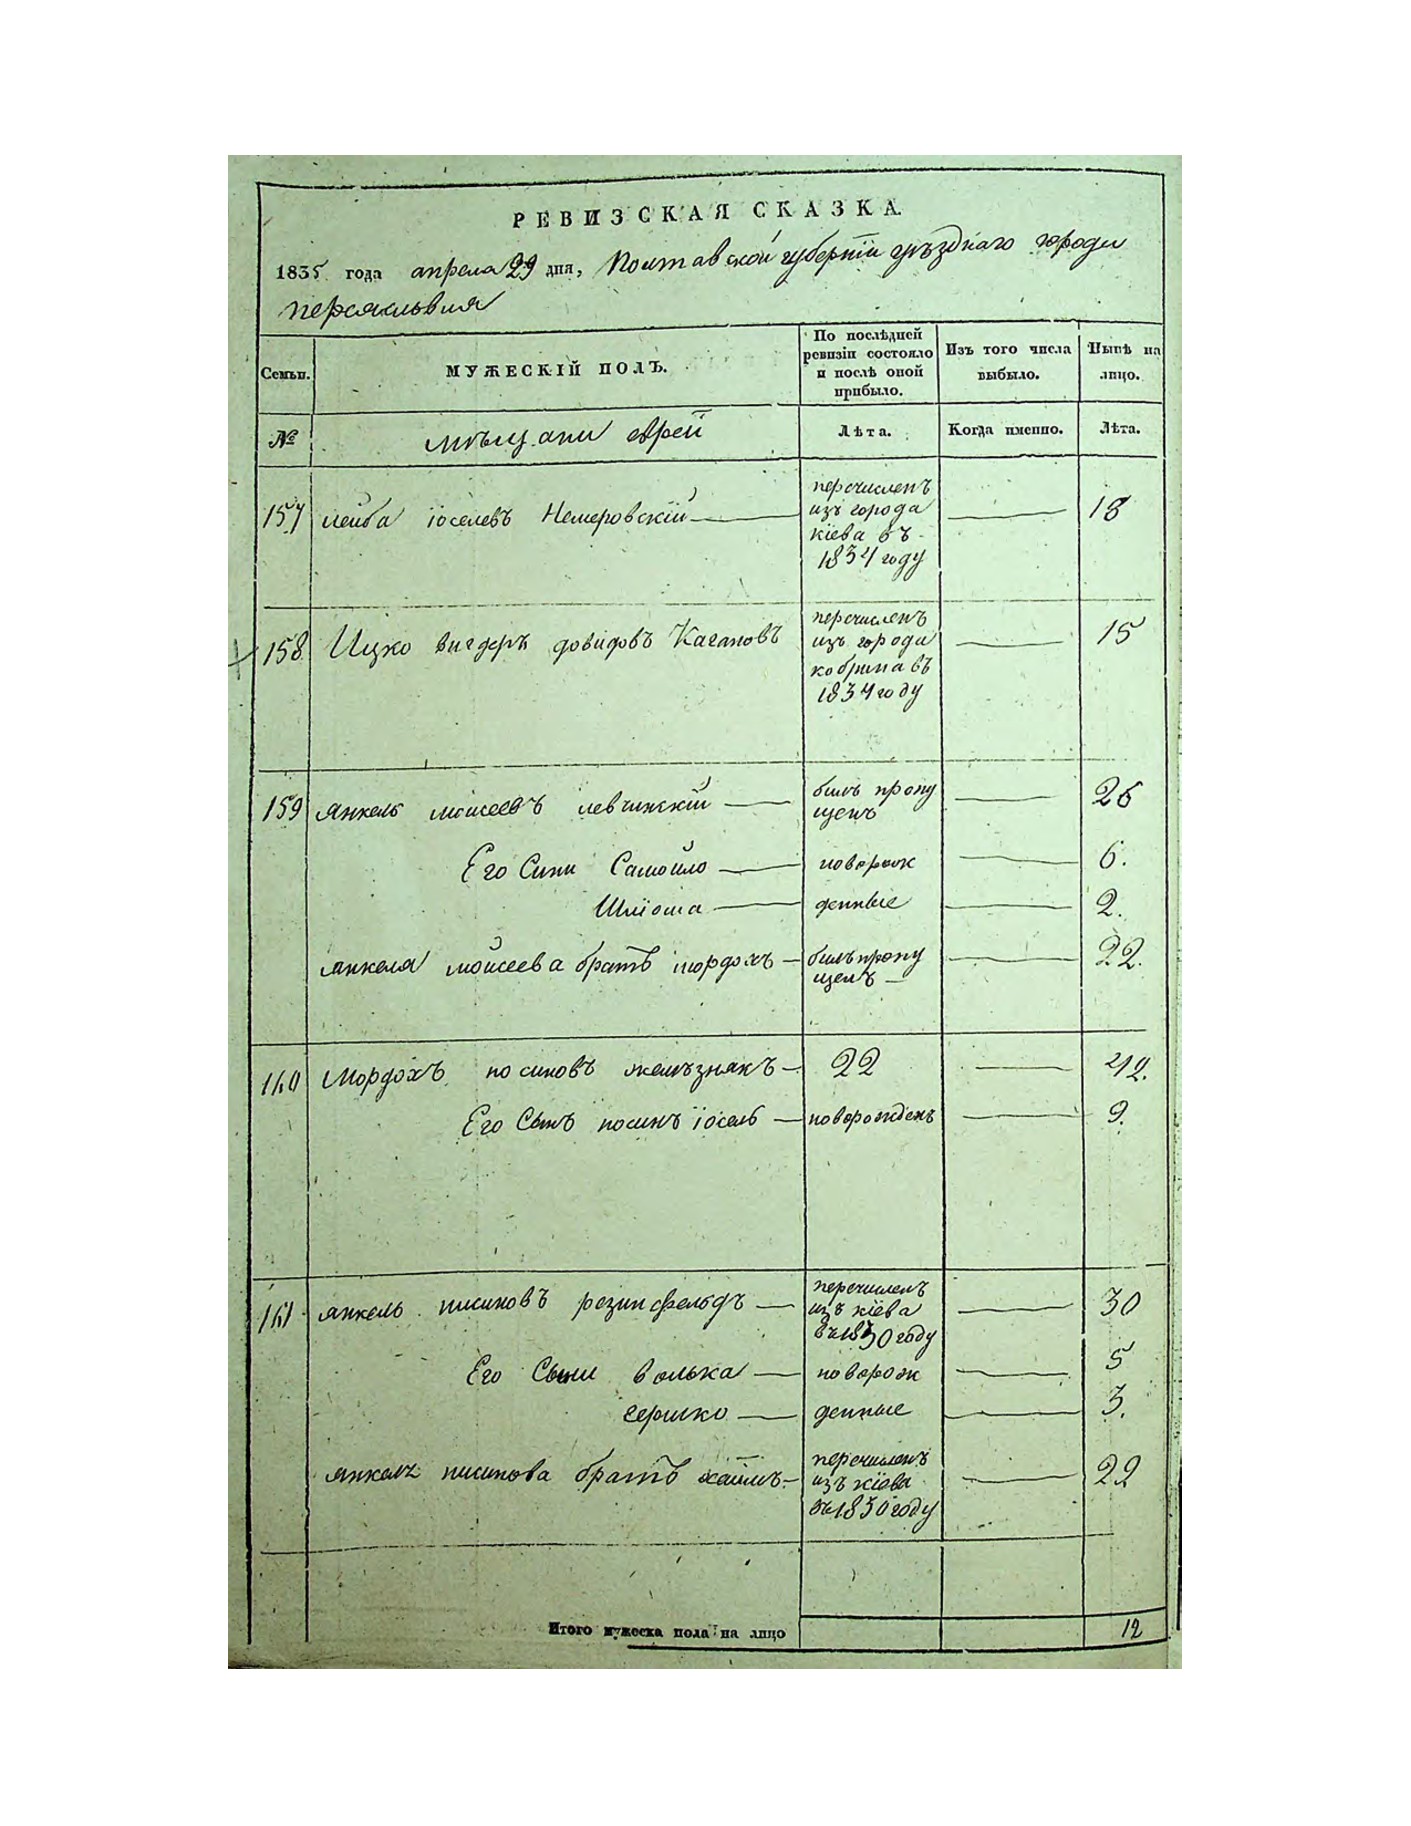 РЕВИЗСКАЯ СКАЗКА.
1835 года апреля 29 дня, Полтавской губернїи уѣзднаго города
переяславля
Семьи.
МУЖЕСКІЙ ПОЛЪ.
По послѣдней
ревизіи состояло
и послѣ оной
прибыло.
Изъ того числа
выбыло.
Нынѣ на
лицо.
№
мѣщани еврей
Лѣта.
Когда именно.
Лѣта.
157 лейба їоселевъ Немеровскїй перечисленъ 18
изъ города
кїева въ
1834 году
158 Ицко вигдеръ довидовъ Кагановъ перечисленъ 15
изъ города
кобрина въ
1834 году
159 янкель моисеевъ левчинскїй билъ пропу 26
щенъ
Его Сини Самойло новорож 6.
Шлїома денные 2.
янкеля мойсеева братъ мордохъ билъ пропу 22.
щенъ
160 Мордохъ носиновъ желѣзнякъ 22 42.
Его Сынъ носинъ їосель новорожденъ 9.
161 янкель нисиновъ резинсфельдъ перечисленъ 30
изъ кїева
въ 1830 году
Его Сыни волька новорож 5
гершко денные 3.
янкеля нисинова братъ хаимъ перечисленъ 22
изъ кїева
въ 1830 году
Итого мужеска пола на лицо 12